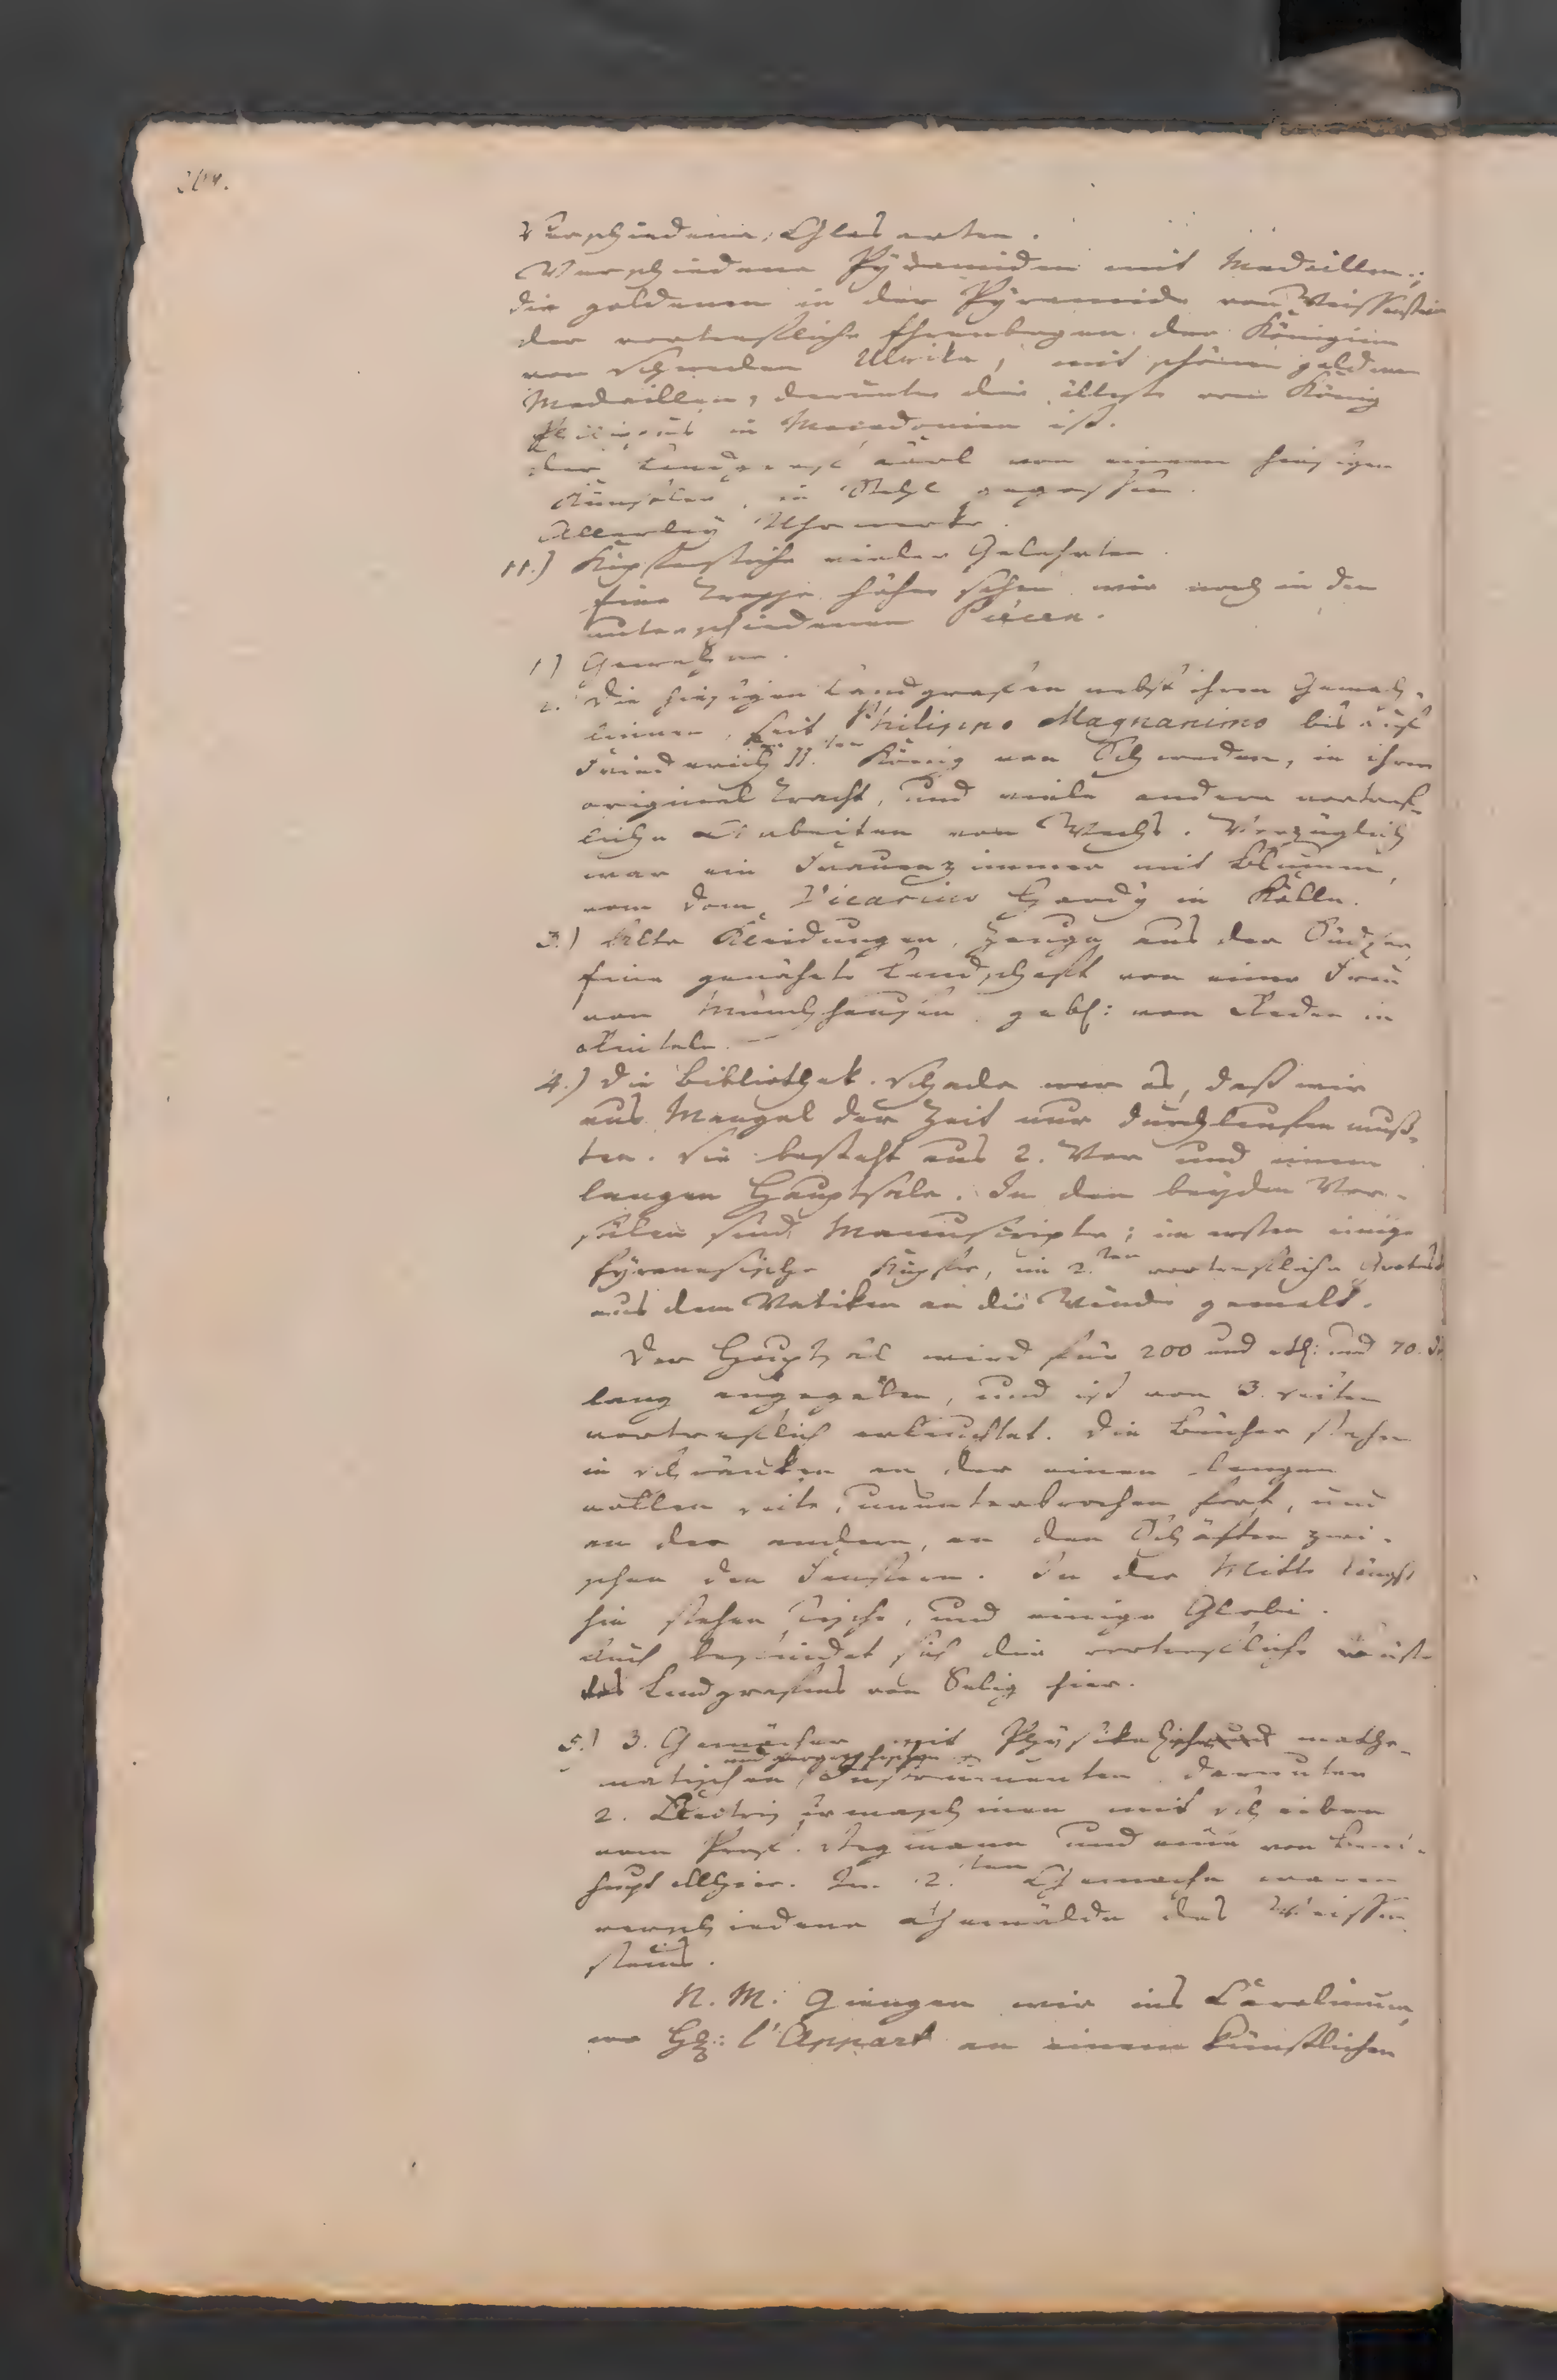 204.
Verschiedene Glas arten.
Verschiedene Pyramiden mit Medaillen;
die goldenen in der Pyramide von Weissenstein
der vortrefliche Ehrenbogen der Königinn
von Schweden Ulrika, mit schönen goldenen
Medaillen, darunter die älteste vom König
Philippus in Macedonien ist.
der Landgraf Carl von einem hiesigen
Künstler, in Stahl gegossen.
Allerley Uhrwerke.
11.) Kupferstiche vieler Gelehrten.
Eine Treppe höher sahen wir noch in den
unterschiedenen Piecen.
1) Gewehre.
2. Die hiesigen Landgrafen nebst ihren Gemah-
linnen, seit Philippo Magnanimo bis auf
Friedrich II.ten König von Schweden, in ihrer
original Tracht, und viele andere vortref-
liche Arbeiten von Wachs. Vorzüglich
war ein Frauenzimmer mit Blumen,
vom Dom Vicarius Hardy in Kölln.
3.) Alte Kleidungen, Zeuge aus der Südsee,
Eine genähete Landschaft von einer Frau
von Münchhausen geb: von Reden in
Rinteln. —
4.) Die Bibliothek. Schade war es, daß wir
aus Mangel der Zeit nur durchlaufen muß-
ten. Sie besteht aus 2. Vor und einem
langen Hauptsale. In den beyden Vor-
sälen sind Manuscripte; im ersten einige
Kupfer, im 2.ten vortrefliche
aus dem Vatikan an die Wände gemalt.
Der Hauptsal wird für 200 und und 70.
lang angegeben, und ist von 3. Seiten
vortreflich erleuchtet. Die Bücher stehn
in Schränken an der einen langen
vollen Seite, ununterbrochen fort, und
an der andern, an den Schäften zwi-
schen den Fenstern. In der Mitte längst
hin stehen Tische, und einige Globi.
Auch befindet sich die vortrefliche Büste
des Landgrafens von Selig hier.
5.) 3. Gemächer mit Physikalischen mathe-
matischen und geographischen Instrumenten darunter
2. Electrisirmaschinen mit Scheiben
vom Prof. Stegmann und eine von
allhier. Im 2.ten Gemache waren
verschiedene Gemälde des Weissen-
steins.
N. M. Giengen wir ins Carolinum,
wo H: l'Appart an einem künstlichen